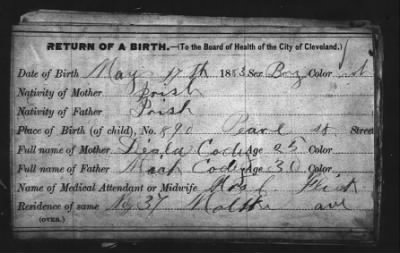 RETURN OF A BIRTH.—(To the Board of Health of the City of Cleveland.)
Date of Birth May 17th 1883 Sex Boy Color
Nativity of Mother Irish
Nativity of Father Irish
Place of Birth (of child), No. 890 Pearl St Street
Full name of Mother Age 25 Color
Full name of Father Age 30 Color
Name of Medical Attendant or Midwife Mrs
Residence of same No 37 ave
(OVER.)